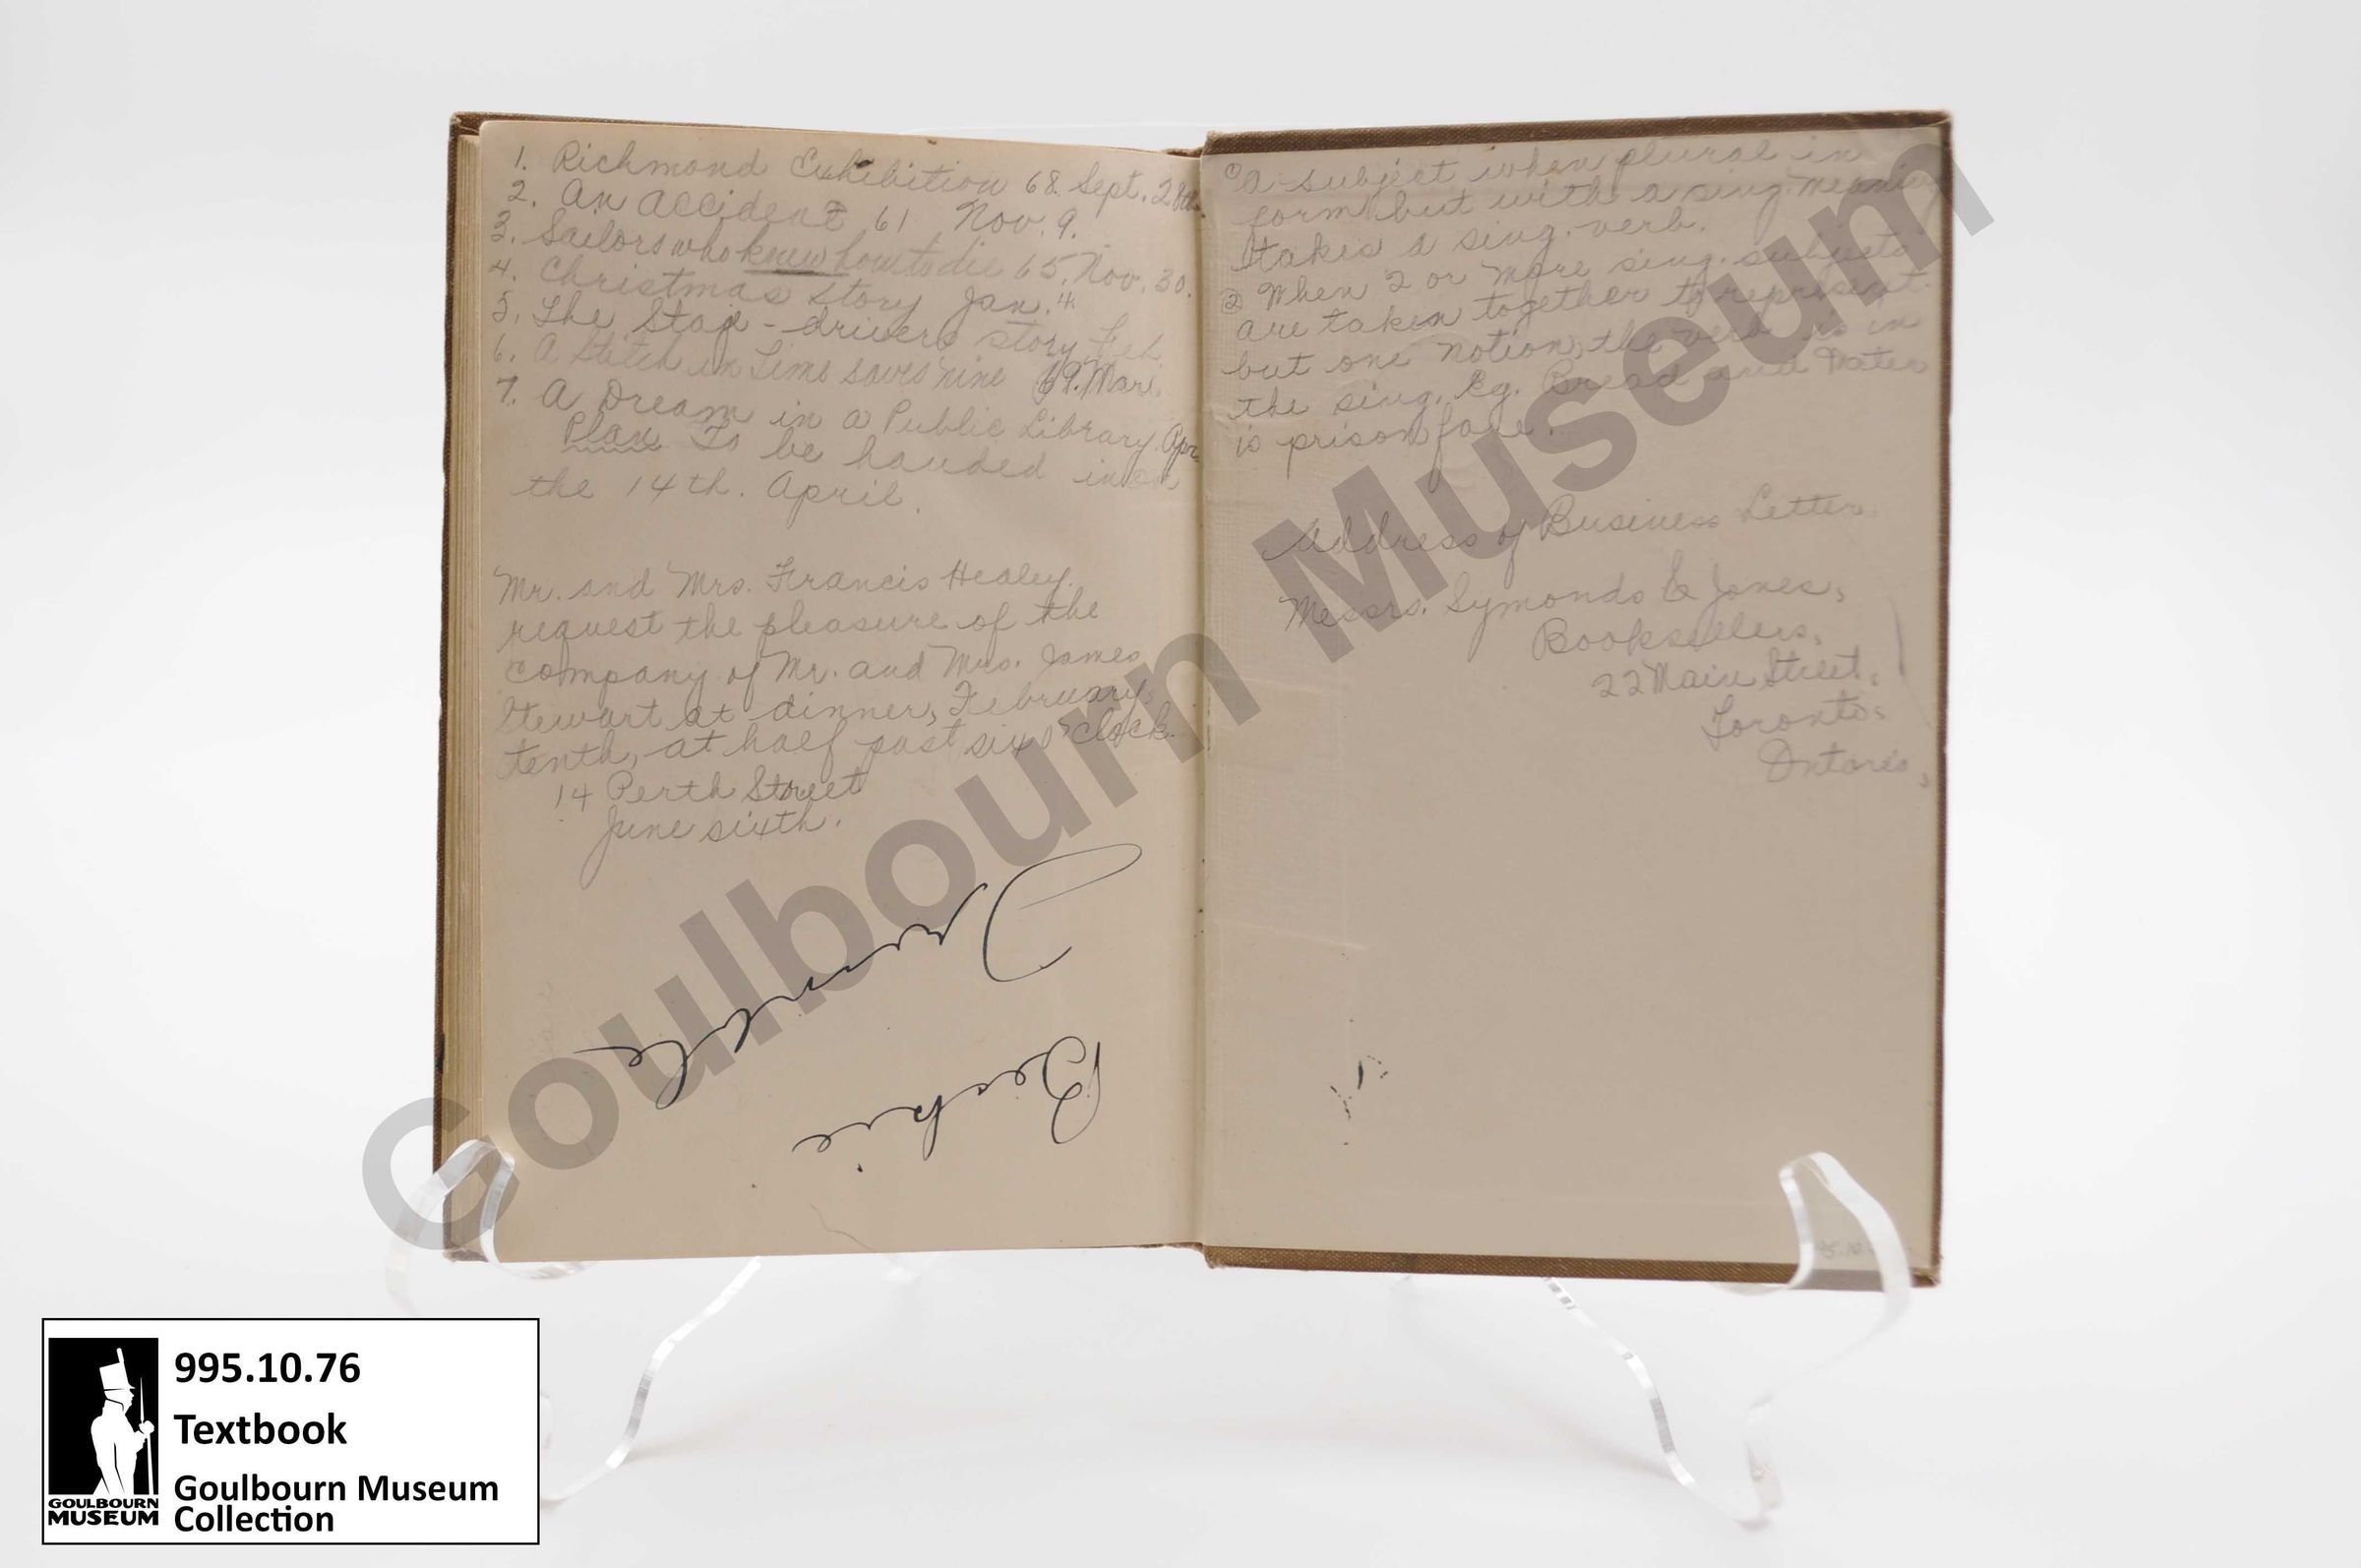 1. Richmond Exhibition 68. Sept. 28th.
2. An Accident 61 Nov. 9.
3. Sailors who knew how to die 65. Nov. 30.
4. Christmas Story Jan. 4.
5. The Stage-drivers story Feb.
6. A Stitch in Time saves nine 69. Mar.
7. A Dream in a Public Library. Apr.
Plan To be handed in on
the 14th. April.
Mr. and Mrs. Francis Healey.
request the pleasure of the
company of Mr. and Mrs. James
Stewart at dinner, February
tenth, at half past six o'clock.
14 Perth Street
June sixth.
Bertie
① A subject when plural in
form but with a sing. meaning
takes a sing. verb.
② When 2 or more sing. subjects
are taken together to represent
but one notion, the verb is in
the sing. Eg. Bread and Water
is prison fare.
Address of Business Letter.
Messrs. Symonds & Jones,
Booksellers,
22 Main Street,
Toronto,
Ontario,
Goulbourn Museum
995.10.76
Textbook
Goulbourn Museum
Collection
GOULBOURN
MUSEUM